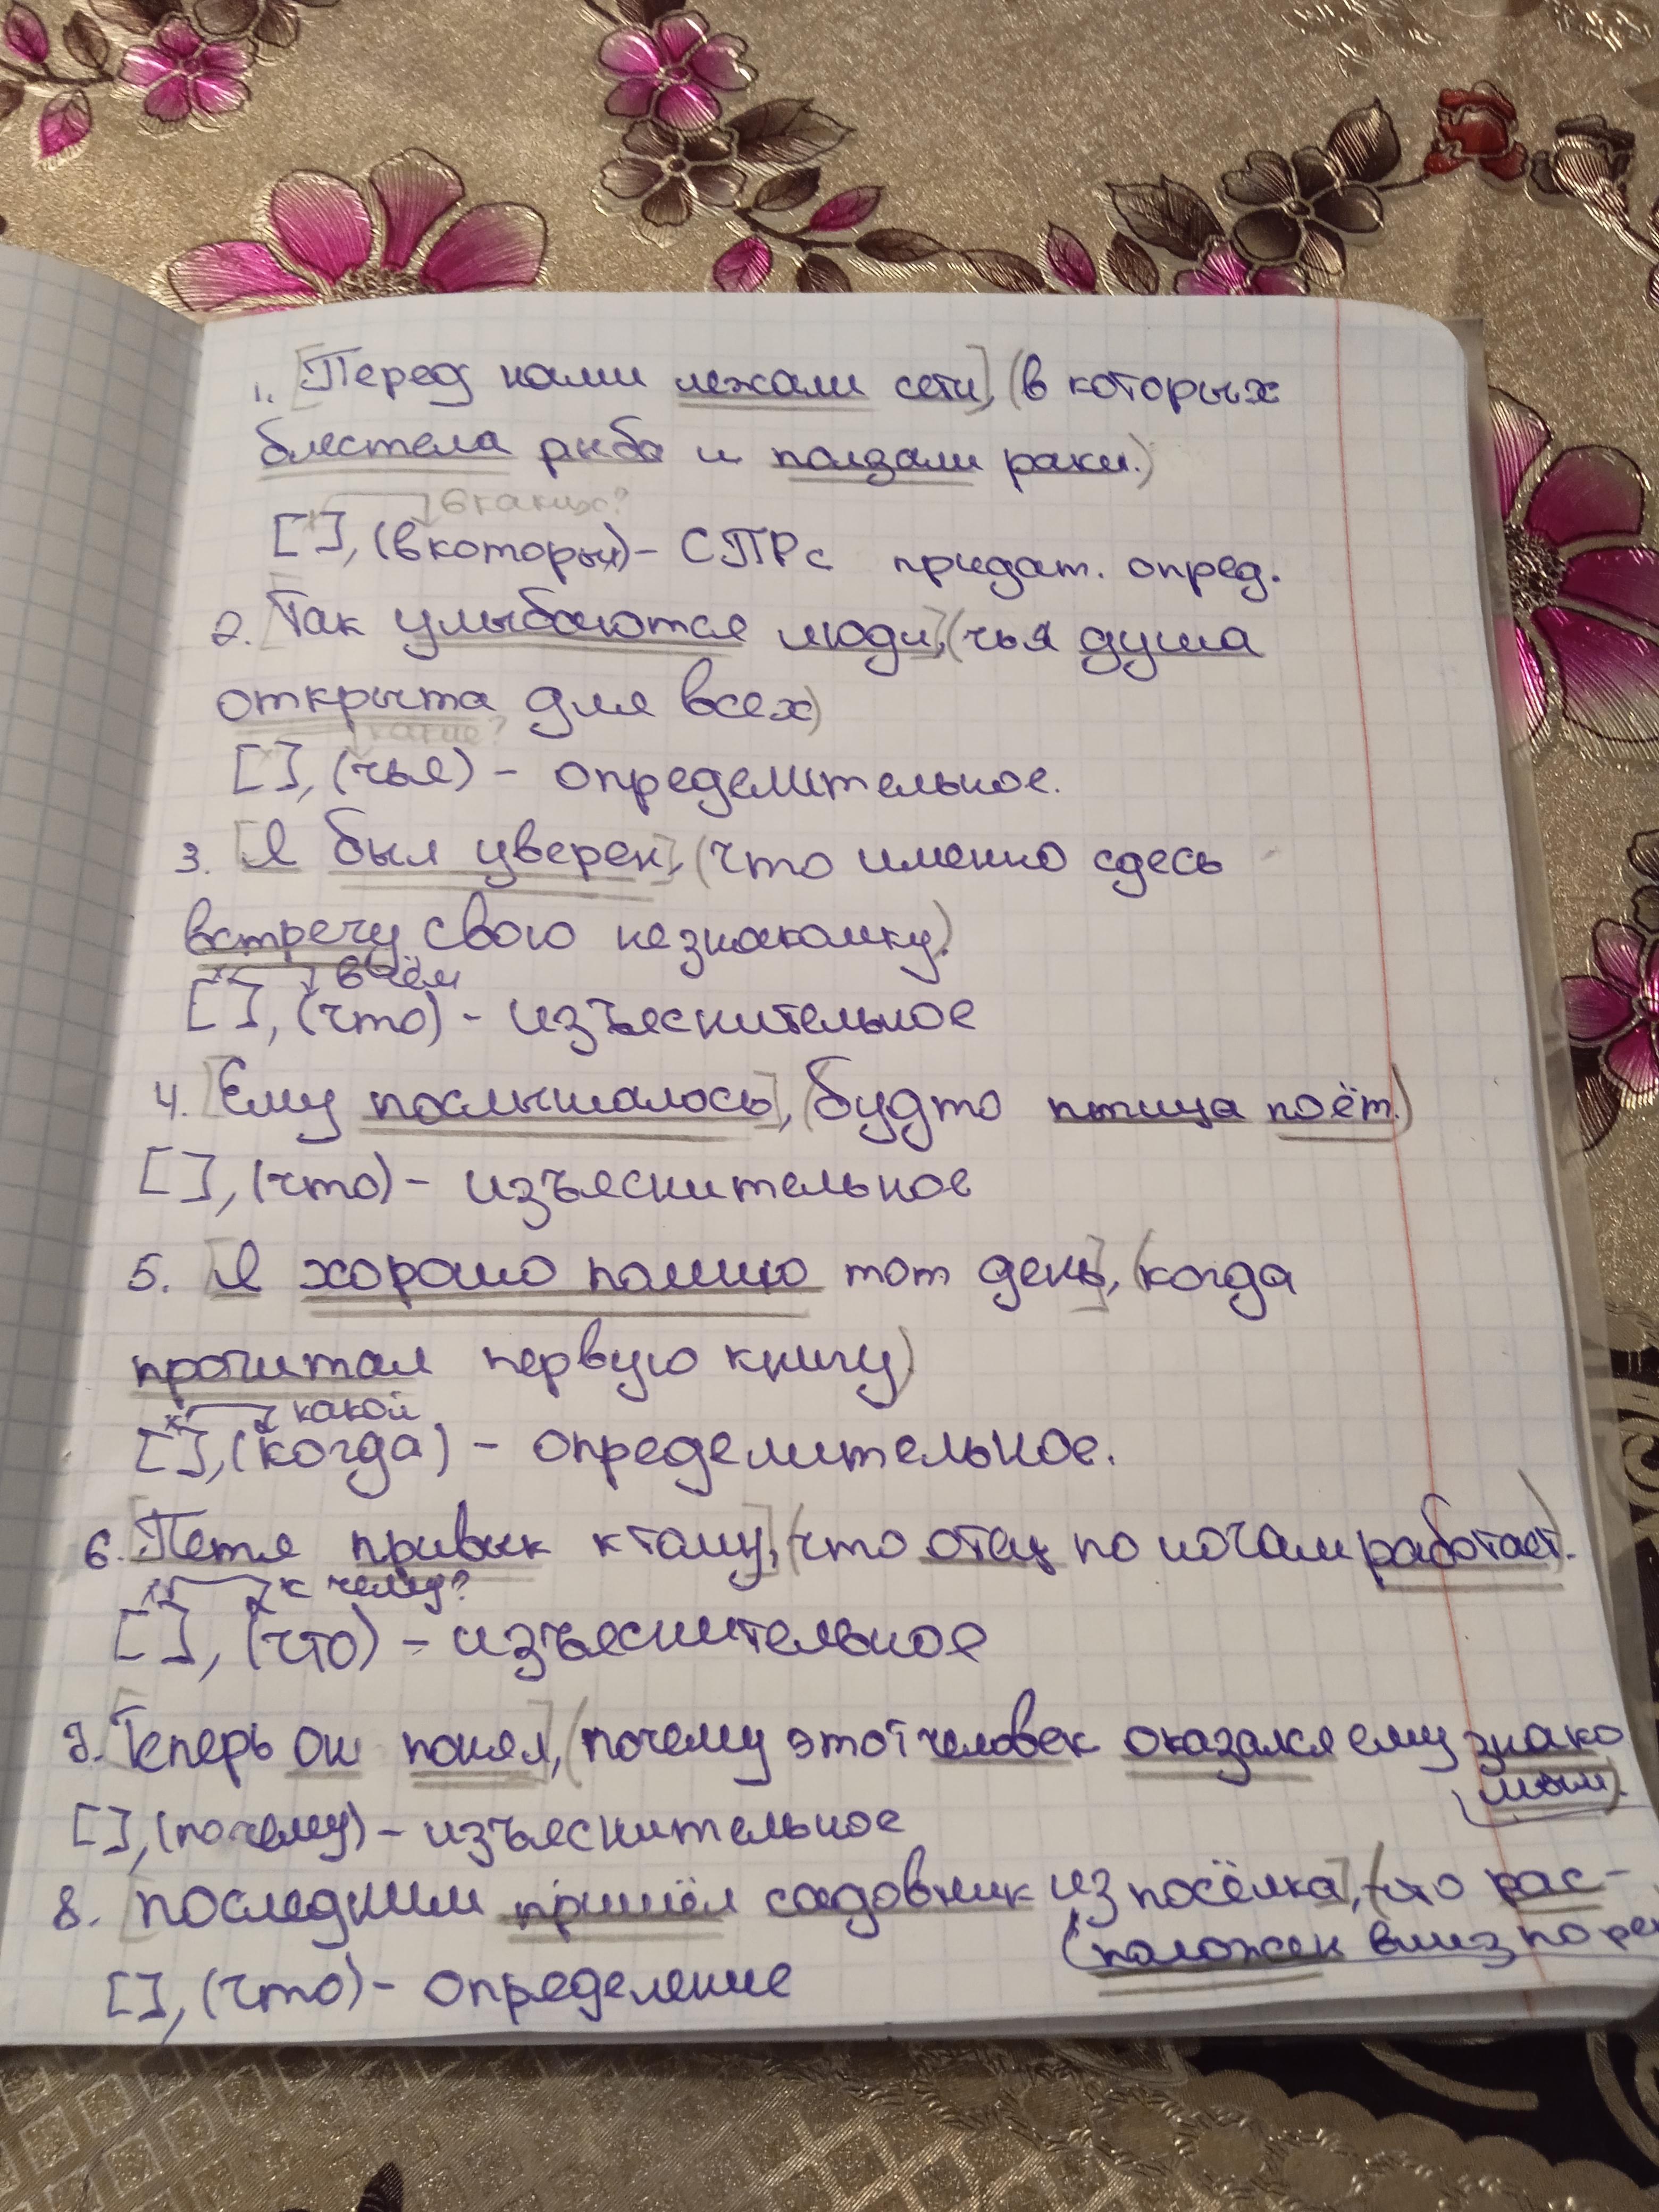 1. [Перед нами лежали сети], (в которых
блестела рыба и ползали раки.)
в каких?
[ ], (в которых) - СПР с придат. опред.
2. [Так улыбаются люди], (чья душа
открыта для всех)
какие?
[ ], (чья) - определительное.
3. [Я был уверен], (что именно сдесь
встречу свою незнакомку.)
в чём
[ ], (что) - изъяснительное
4. [Ему послышалось], (будто птица поёт.)
[ ], (что) - изъяснительное
5. [Я хорошо помню тот день], (когда
прочитал первую книгу)
х какой
[ ], (когда) - определительное.
6. [Петя привык к тому], (что отец по ночам работает.)
к чему?
[ ], (что) - изъяснительное
7. [Теперь он понял], (почему этот человек оказался ему знако
мым).
[ ], (почему) - изъяснительное
8. [последним пришёл садовник из посёлка], (что рас-
(положен вниз по ре
[ ], (что) - определение